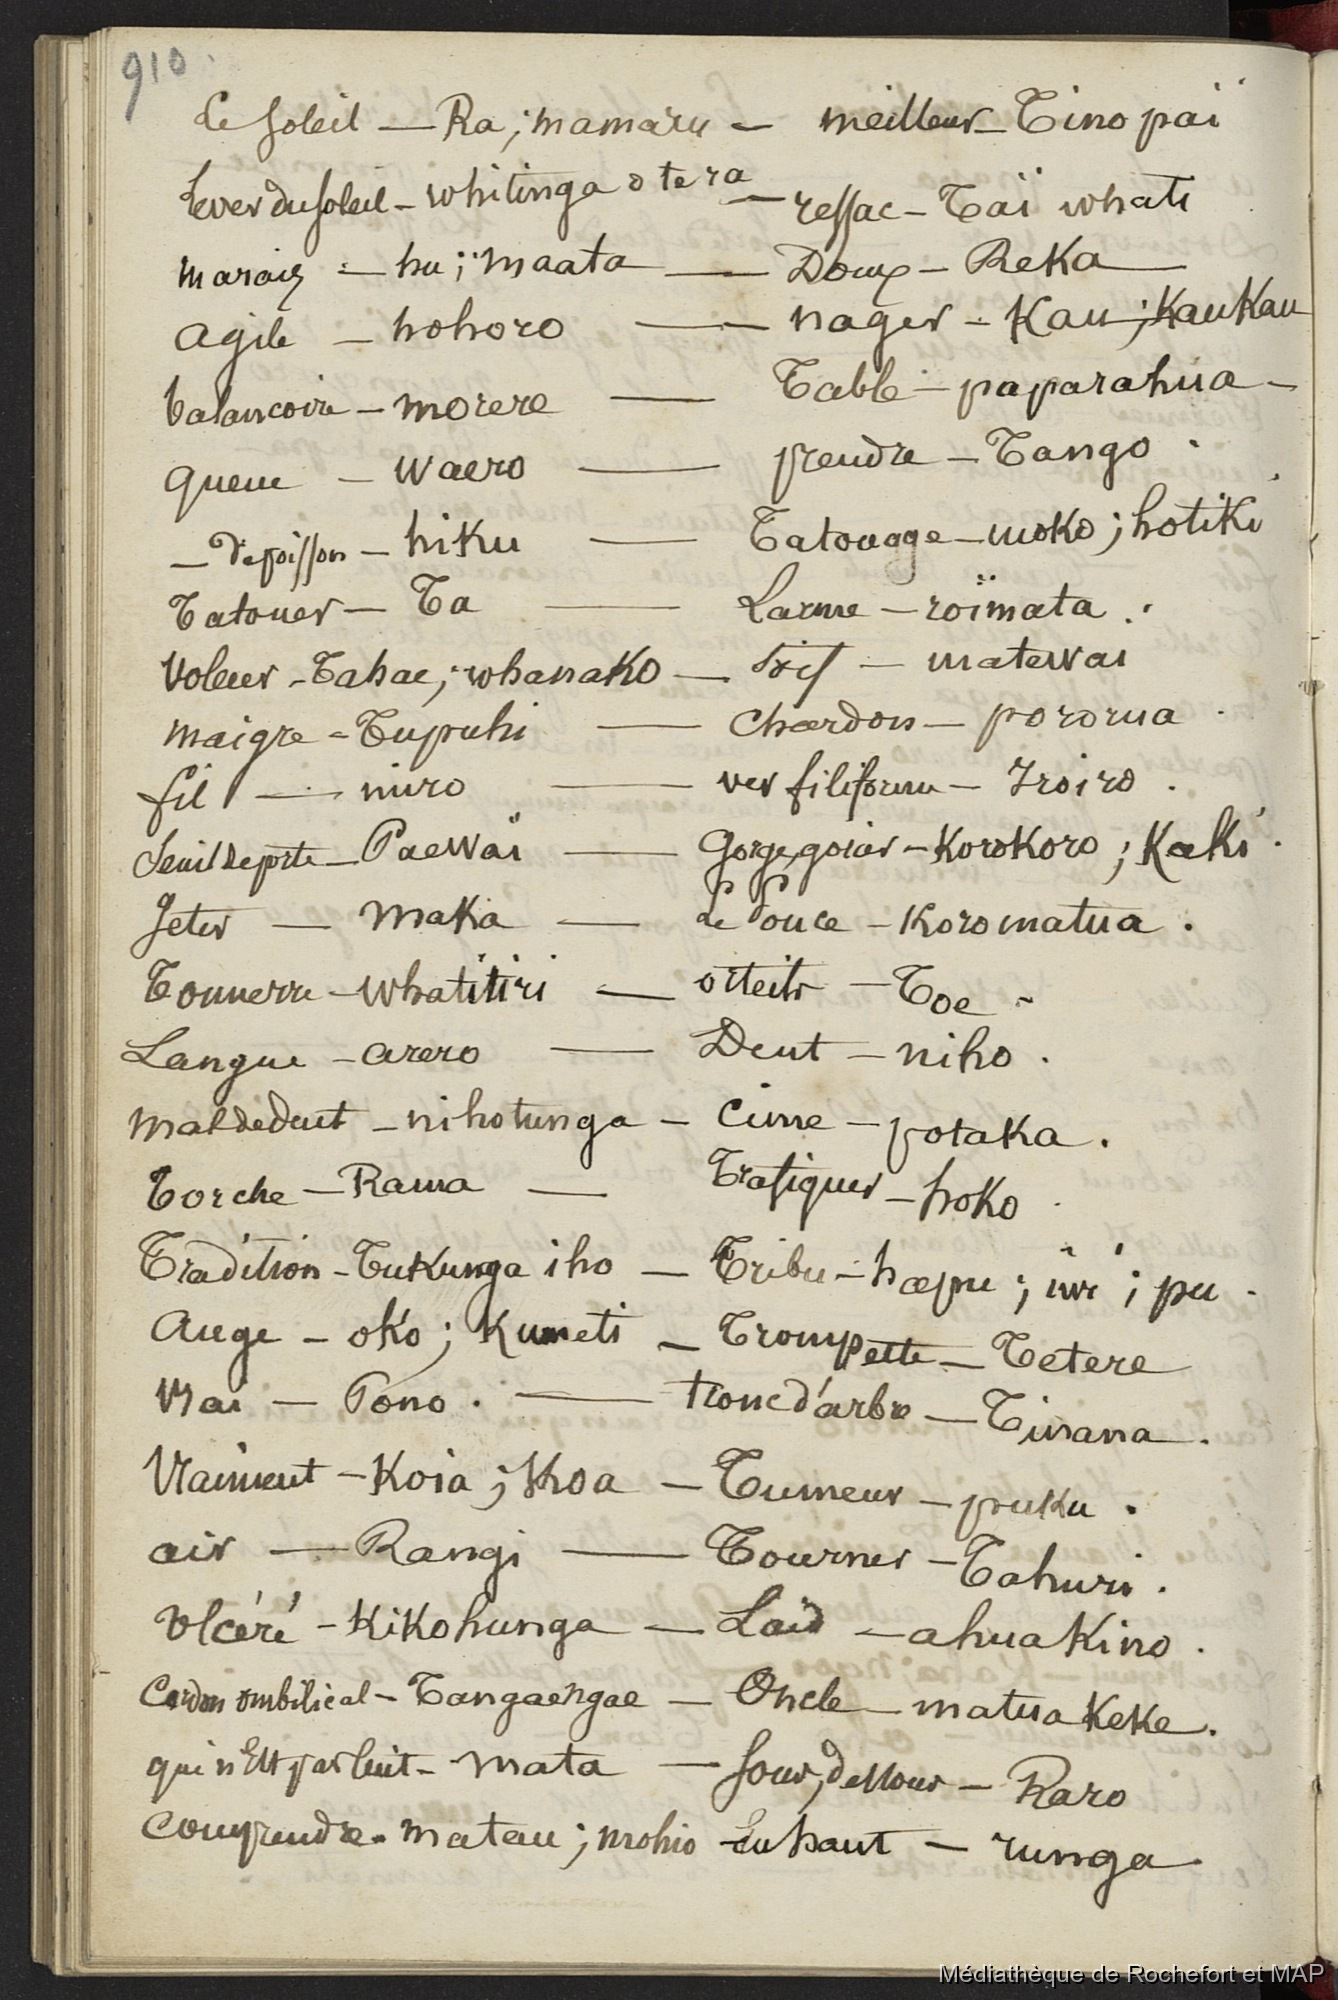 910.
Le soleil — Ra; mamaru — meilleur — Tino pai
Lever du soleil — whitinga o te ra — ressac — Taï whati
marais — hu; maata — Doux — Reka —
agile — hohoro — nager — Kau; KauKau
balancoire — morere — Table — paparahua —
queue — waero — prendre — Tango.
— de poisson — hiku — Tatouage — moko; hotiki
Tatouer — Ta — Larme — roïmata.
Voleur — Tahae; whanaKo — soif — matewai
maigre — Tupuhi — Chardon — pororua.
fil — miro — ver filiforme — Iroiro.
Seuil de porte — Paewaï — Gorge, gosier — KoroKoro; KaKi.
Jeter — maKa — Le Pouce — Koromatua.
Tonnerre — whatitiri — orteils — Toe —
Langue — arero — Dent — niho.
mal de dent — nihotunga — cime — potaka.
Torche — Rama — Trafiquer — hoko.
Tradition — TuKunga iho — Tribu — hapu; iwi; pu.
Auge — oko; Kumeti — Trompette — Tetere
Vrai — Pono. — tronc d'arbre — Tinana.
Vraiment — Koia; Koa — Tumeur — puku.
air — Rangi — Tourner — Tahuri.
Ulcéré — KiKohunga — Laid — ahuaKino.
Cordon ombilical — Tangaengae — Oncle — matua KeKe.
qui n'est pas cuit — mata — sous, dessous — Raro
Comprendre — matau; mohio — En haut — runga
Médiathèque de Rochefort et MAP